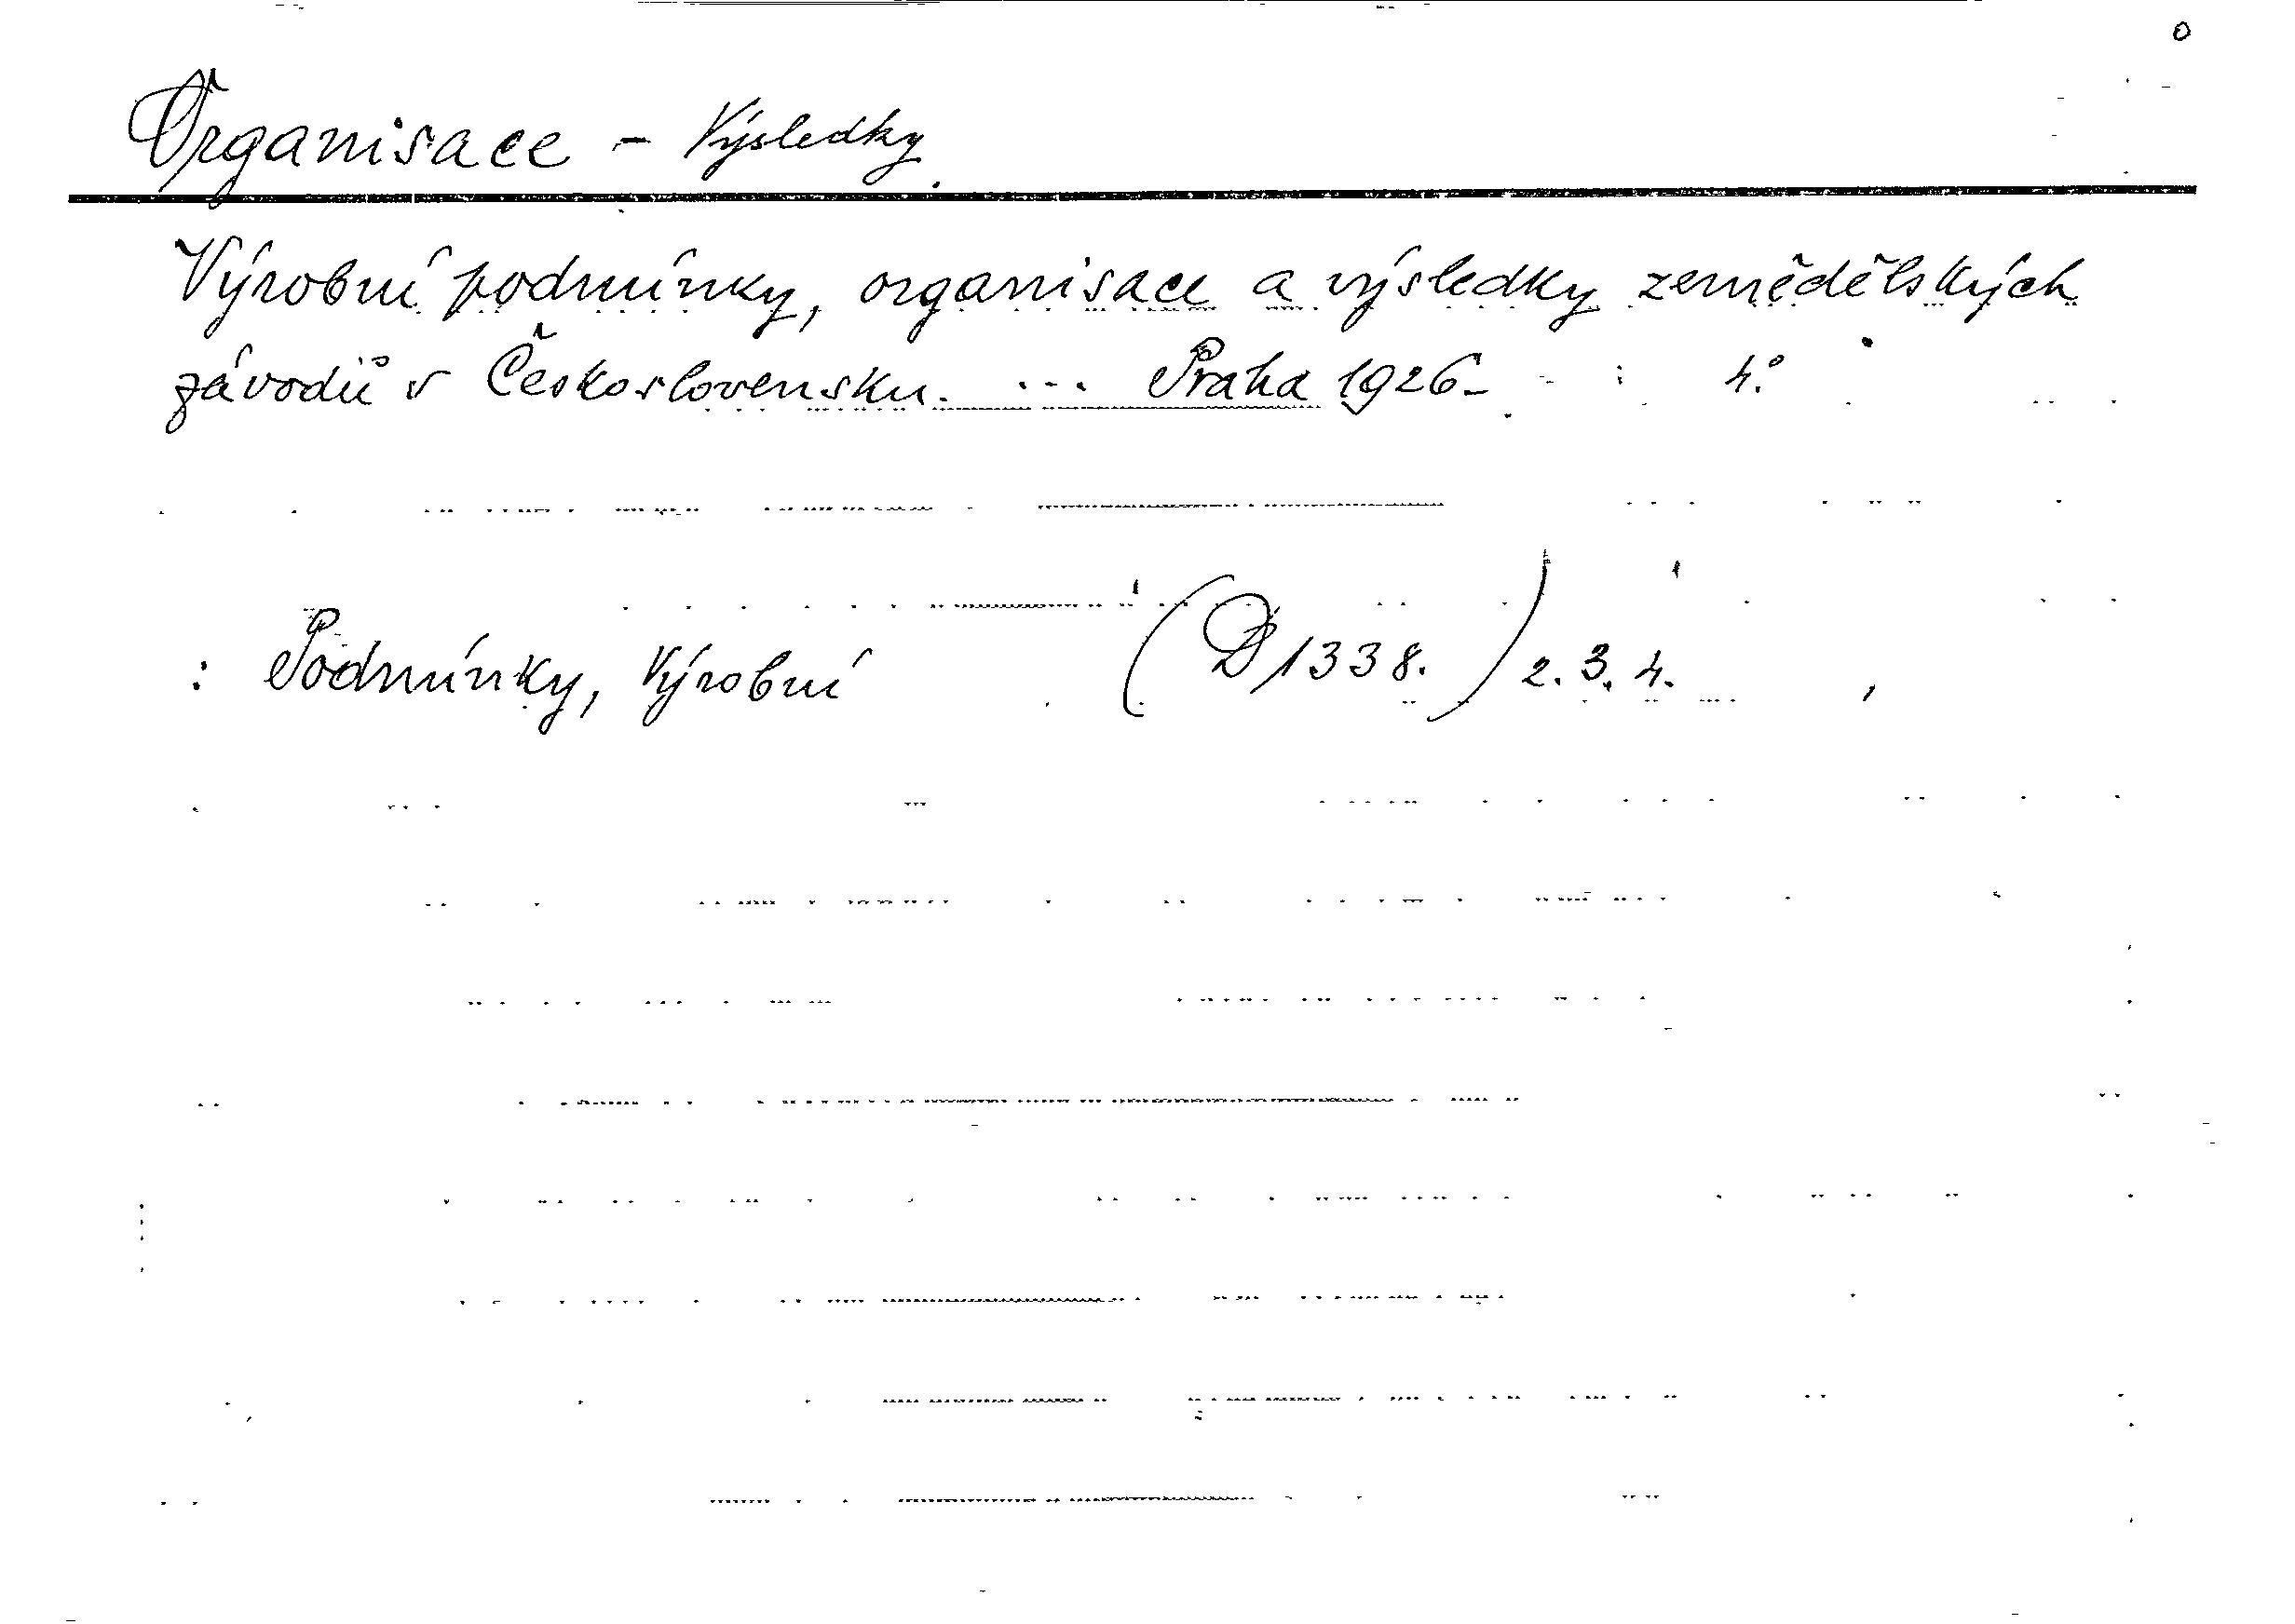 Organisace - Výsledky.
Výrobní podmínky, organisace a výsledky zemědělských
závodů v Československu. ... Praha 1926- 4.°
: Podmínky, Výrobní (D 1338.) 2. 3. 4.